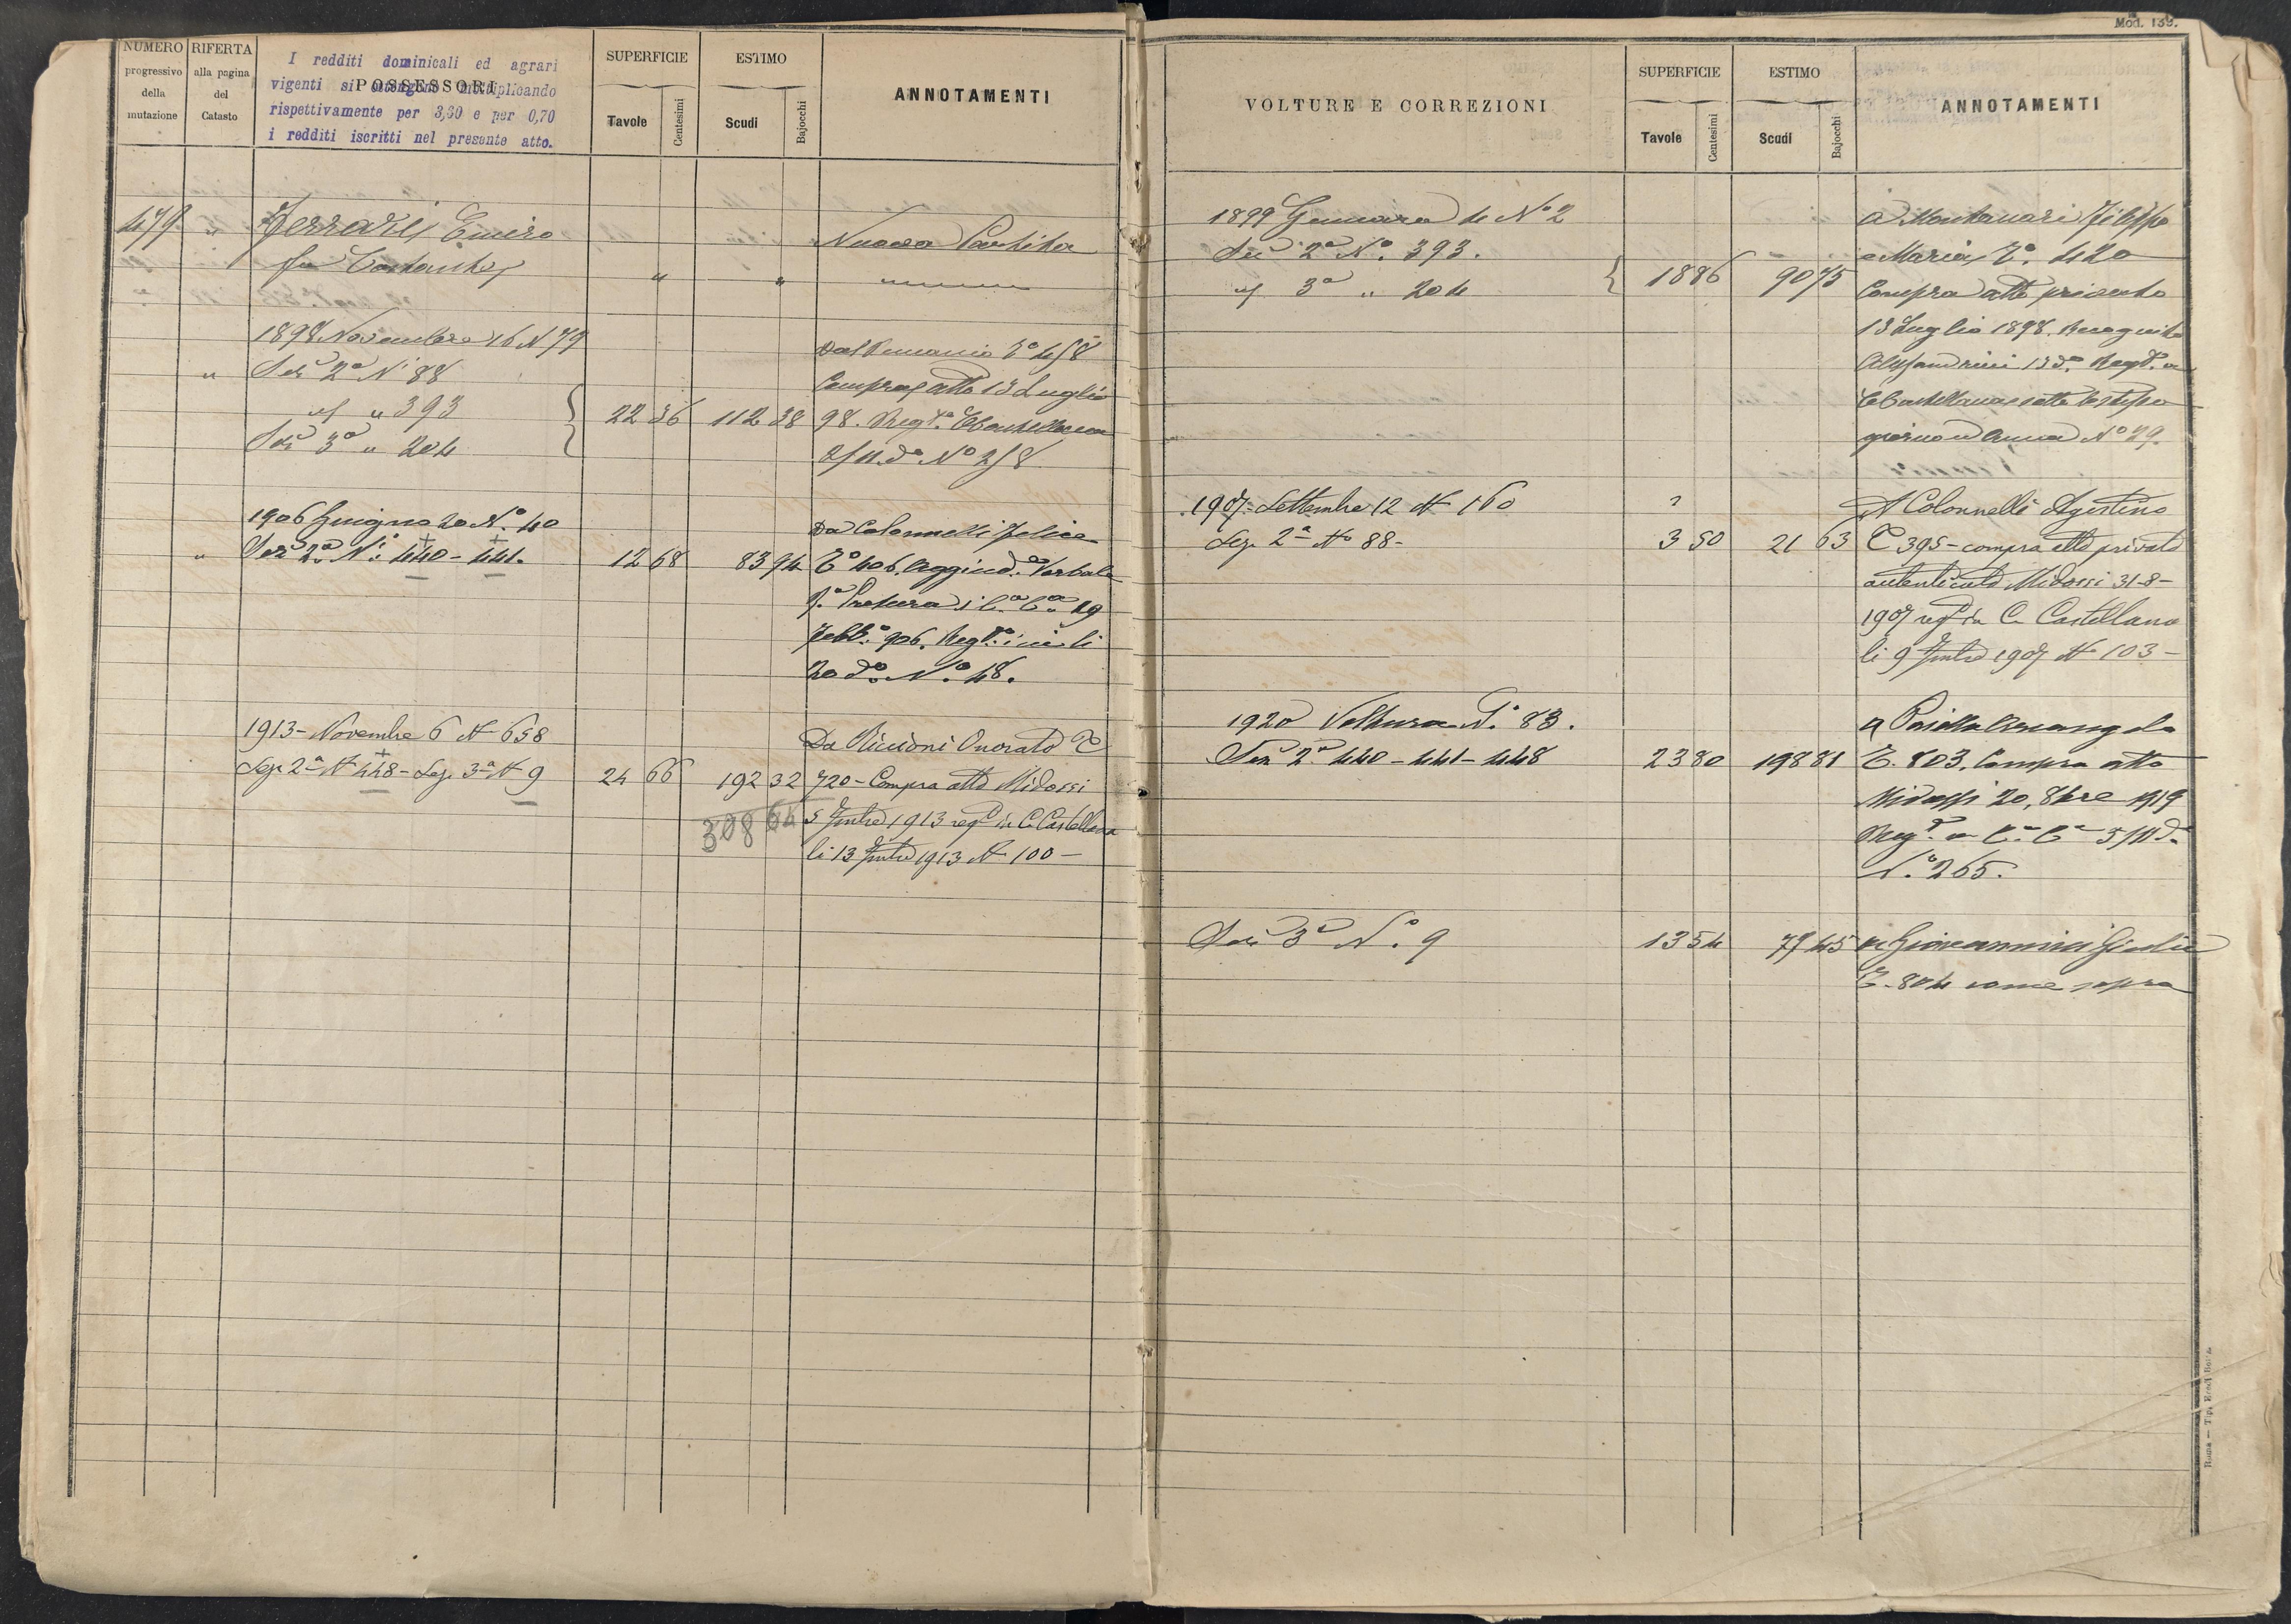 NUMERO
progressivo
della
mutazione
RIFERTA
alla pagina
del
Catasto
POSSESSORI
I redditi dominicali ed agrari
vigenti si moltiplicando
rispettivamente per 3,60 e per 0,70
i redditi iscritti nel presente atto.
SUPERFICIE
Tavole
Centesimi
ESTIMO
Scudi
Bajocchi
ANNOTAMENTI
479 " Ferrari Emiro
fu " " Nuova Partita
1898 Novembre 16 N 79
" Sez 2a N 88
" " 393
Sez 3a " 204
22 36 112 38
Dal T.o 458
Compra atto 13 Luglio
98. Reg.to
N.o 258
1906 Giugno 20 N.o 40
" Sez 2a N.i 440 - 441.
12 68 83 94
Da Colonnelli Felice
T.o 406. Aggiud. Verbale
Pretura C.a C.a 19
Febb.o 906. Reg.to ivi li
20 d.o N.o 48.
1913 - Novembre 6 N 658
Sez 2a N 448 - Sez. 3a N 9
24 66 192 32
308 64
Da Riccioni Onorato T
720 - Compra atto Midossi
5 1913 reg in C. Castellana
li 13 1913 N 100 -
Mod. 139.
VOLTURE E CORREZIONI
SUPERFICIE
Tavole
Centesimi
ESTIMO
Scudi
Bajocchi
ANNOTAMENTI
1899 Gennaro 4 N.o 2
Sez 2a N.o 393.
" 3a " 204
18 86 90 75
a Montanari Filippo
e Maria T.o 420
Compra atto privato
13 Luglio 1898.
Alessandrini 13 d.o Reg.to a
giorno N.o 29.
1907 = Settembre 12 N 160
Sez. 2a No 88 -
3 50 21 63
A Colonnelli Agostino
T 395 - compra atto privato
autenticato Midossi 31-8-
1907 reg in C. Castellana
li 9 1907 N 103 -
1920 Voltura N.o 83.
Sez 2a 440 - 441 - 448
23 80 198 81
a Arcangelo
T. 803. Compra atto
Midossi 20, 8bre 1919
Reg.to a C.a C.a
N.o 265.
Sez 3a N.o 9
13 54 77 45
a Giovannini Giulio
T. 804 come sopra
Roma — Tip. Eredi Botta